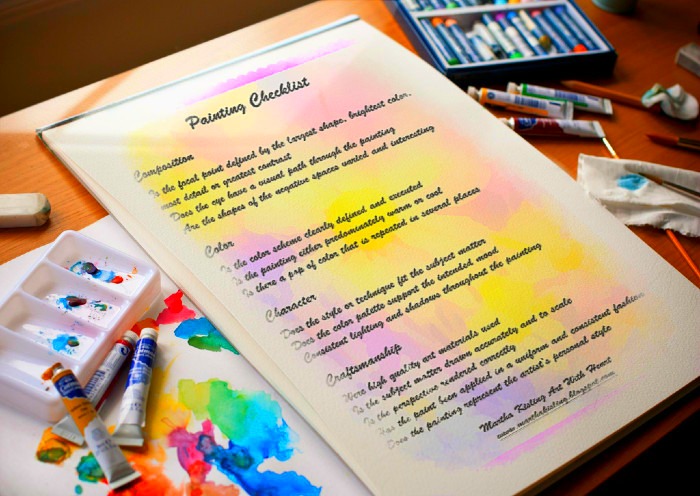 Painting Checklist
Composition
Is the focal point defined by the largest shape, brightest color,
most detail or greatest contrast
Does the eye have a visual path through the painting
Are the shapes of the negative spaces varied and interesting
Color
Is the color scheme clearly defined and executed
Is the painting either predominately warm or cool
Is there a pop of color that is repeated in several places
Character
Does the style or technique fit the subject matter
Does the color palette support the intended mood
Consistent lighting and shadows throughout the painting
Craftsmanship
Were high quality art materials used
Is the subject matter drawn accurately and to scale
Is the perspective rendered correctly
Has the paint been applied in a uniform and consistent fashion
Does the painting represent the artist's personal style
Martha Kisling Art With Heart
www.marthakisling.blogspot.com